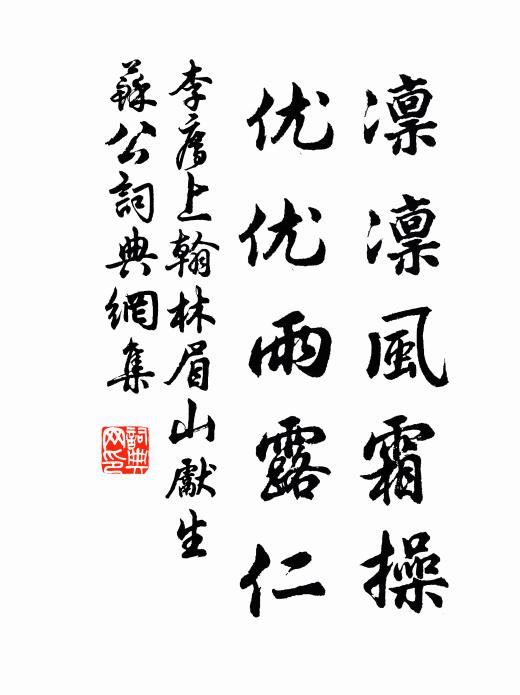 凛凛風霜操
优优雨露仁
李廌上翰林眉山獻生
蘇公詞典網集
詞典网印